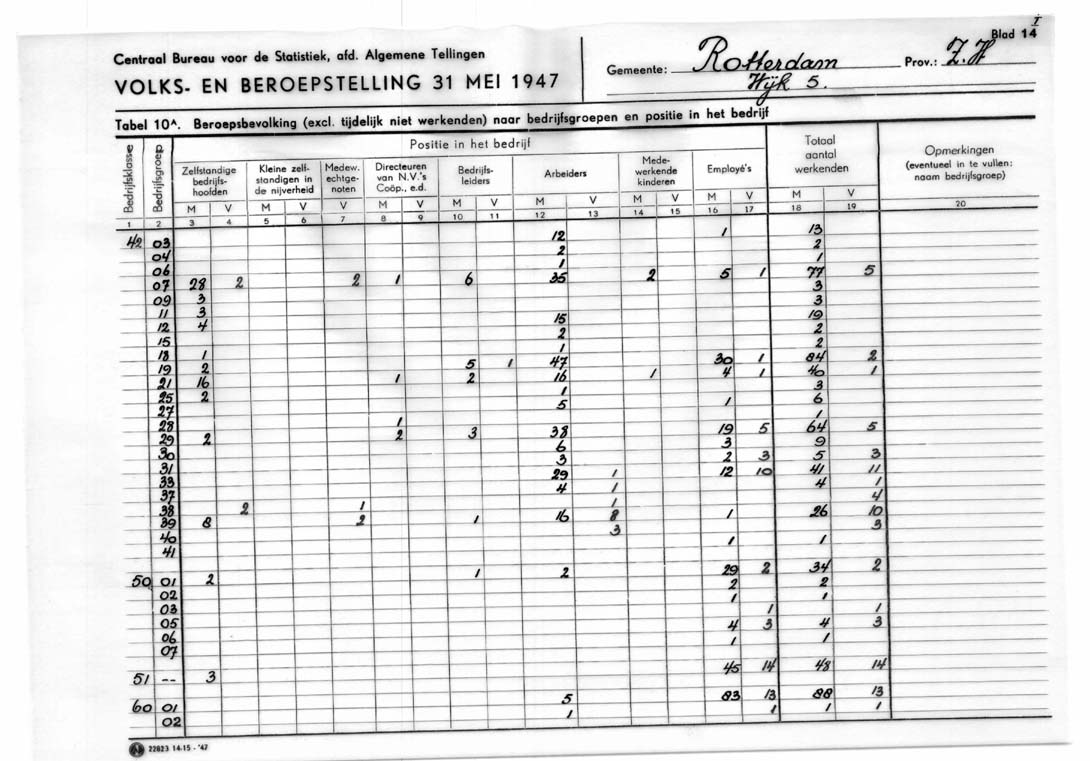 I
Blad 14
Centraal Bureau voor de Statistiek, afd. Algemene Tellingen
VOLKS- EN BEROEPSTELLING 31 MEI 1947
Gemeente: Rotterdam Prov.: Z.H
Wijk 5.
Tabel 10A. Beroepsbevolking (excl. tijdelijk niet werkenden) naar bedrijfsgroepen en positie in het bedrijf
Bedrijfsklasse
Bedrijfsgroep
Positie in het bedrijf
Zelfstandige
bedrijfs-
hoofden
Kleine zelf-
standigen in
de nijverheid
Medew.
echtge-
noten
Directeuren
van N.V.'s
Coöp., e.d.
Bedrijfs-
leiders
Arbeiders
Mede-
werkende
kinderen
Employé's
Totaal
aantal
werkenden
Opmerkingen
(eventueel in te vullen:
naam bedrijfsgroep)
M V M V V M V M V M V M V M V M V
1 2 3 4 5 6 7 8 9 10 11 12 13 14 15 16 17 18 19 20
42 03 12 1 13
04 2 2
06 1 1
07 28 2 2 1 6 35 2 5 1 77 5
09 3 3
11 3 3
12 4 15 19
15 2 2
18 1 1 2
19 2 5 1 47 30 1 84 2
21 16 1 2 16 1 4 1 40 1
25 2 1 3
27 5 1 6
28 1 1
29 2 2 3 38 19 5 64 5
30 6 3 9
31 3 2 3 5 3
33 29 1 12 10 41 11
37 4 1 4 1
38 2 1 1 4
39 8 2 1 16 8 1 26 10
40 3 3
41 1 1
50 01 2 1 2 29 2 34 2
02 2 2
03 1 1
05 1 1
06 4 3 4 3
07 1 1
51 -- 3 45 14 48 14
60 01 5 83 13 88 13
02 1 1 1 1
22823 14-15 - '47